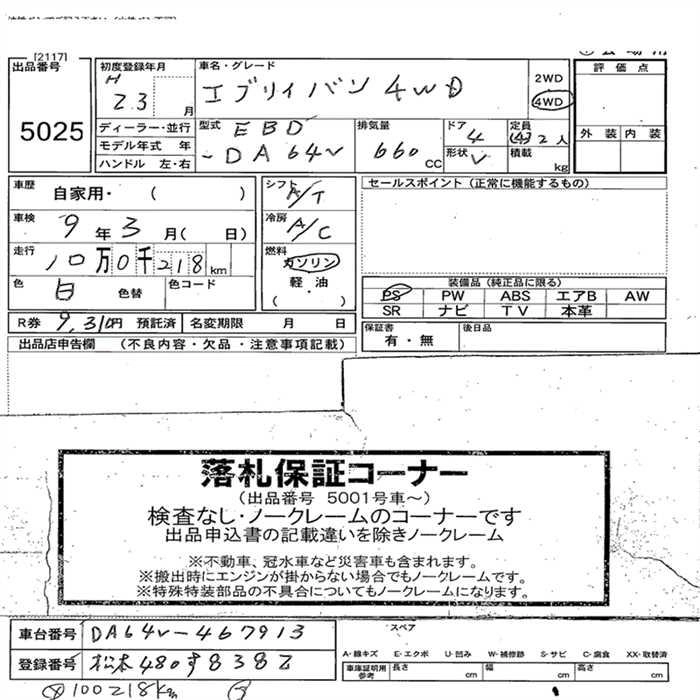 [2117]
出品番号 5025
初度登録年月 H 23 月
車名・グレード エブリイバン 4WD
2WD
4WD
評価点
外装 内装
ディーラー・並行
モデル年式 年
ハンドル 左・右
型式 EBD-DA64V
排気量 660 CC
ドア 4
形状 V
定員 (4) 2 人
積載 kg
車歴 自家用・ ( )
シフト A/T
セールスポイント (正常に機能するもの)
車検 9年 3月( 日)
冷房 A/C
走行 10万0千218km
燃料 ガソリン
軽・油
( )
色 白 色替
色コード
装備品 (純正品に限る)
PS PW ABS エアB AW
SR ナビ TV 本革
R券 9,310円 預託済 名変期限 月 日
保証書 有・無
後日品
出品店申告欄 (不良内容・欠品・注意事項記載)
落札保証コーナー
(出品番号 5001号車~)
検査なし・ノークレームのコーナーです
出品申込書の記載違いを除きノークレーム
※不動車、冠水車など災害車も含まれます。
※搬出時にエンジンが掛からない場合でもノークレームです。
※特殊特装部品の不具合についてもノークレームになります。
車台番号 DA64V-467913
スペア
登録番号 松本480す8382
A・線キズ E・エクボ U・凹み W・補修跡 S・サビ C・腐食 XX・取替済
車庫証明用参考 長さ cm 幅 cm 高さ cm
100218km